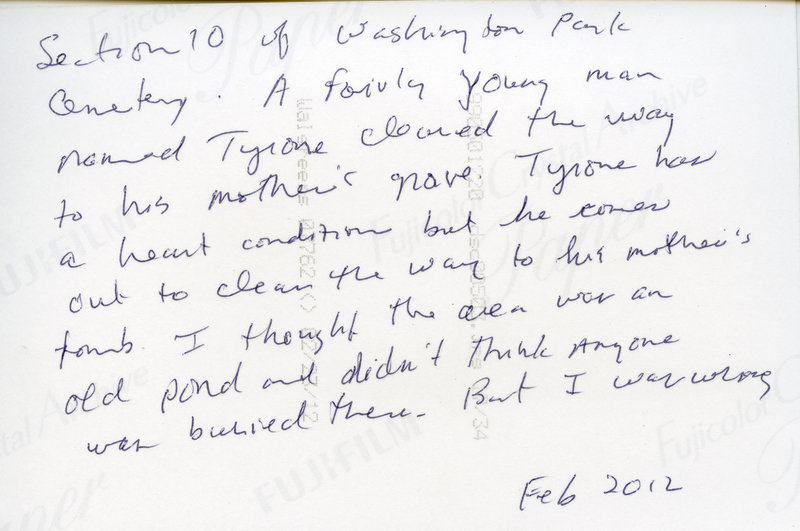 Section 10 of Washington Park
Cemetery. A fairly young man
named Tyrone cleared the way
to his mother's grave. Tyrone has
a heart condition but he comes
out to clean the way to his mother's
tomb. I thought the area was an
old pond and didn't think anyone
was buried there. But I was wrong
Feb 2012
Fujicolor Crystal Archive
Paper
FUJIFILM